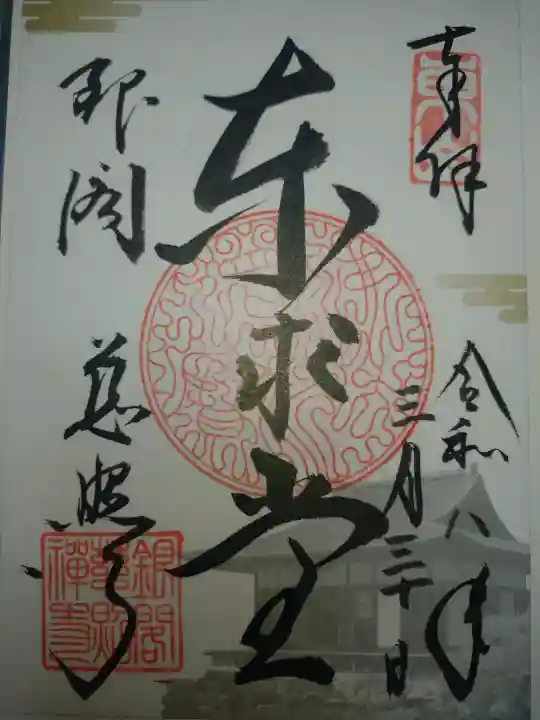 奉拝
令和八年
三月三十日
東求堂
銀閣 慈照寺
銀閣慈照禅寺